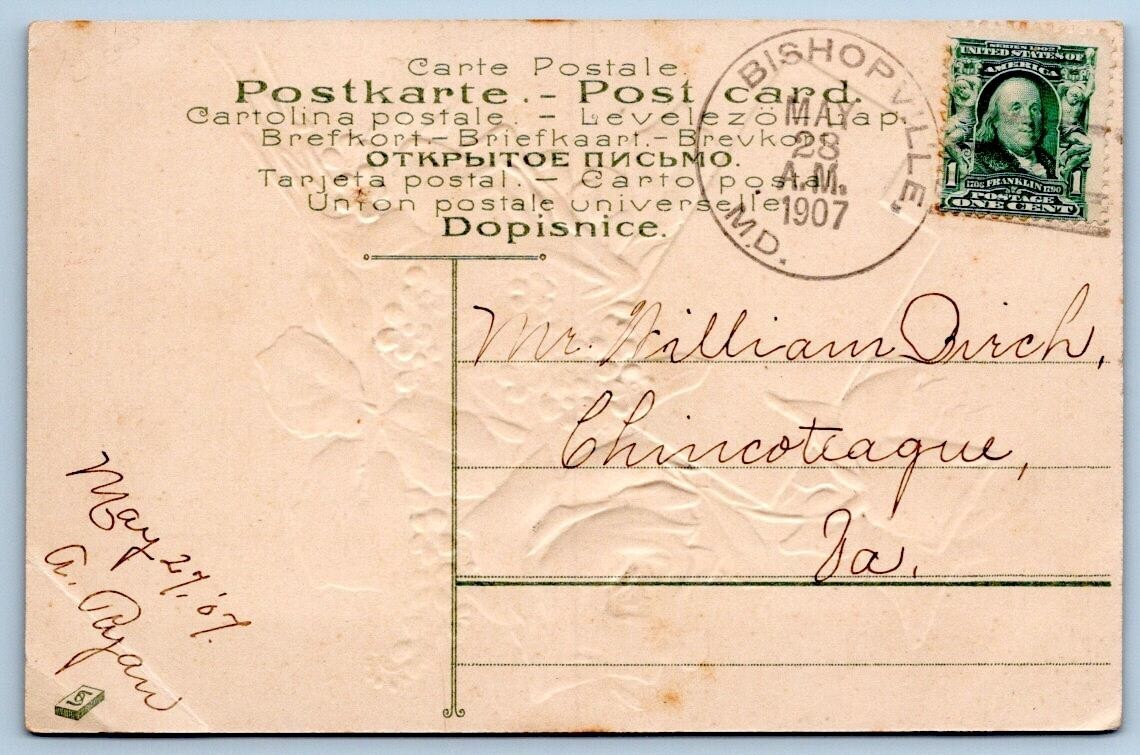 Carte Postale.
Postkarte. - Post card.
Cartolina postale. - Levelező Lap.
Brefkort. - Briefkaart. - Brevkort
ОТКРЫТОЕ ПИСЬМО.
Tarjeta postal. - Carto postal
Union postale universelle
Dopisnice.
BISHOPVILLE,
MAY
28
A.M.
1907
M.D.
SERIES 1902
UNITED STATES OF
AMERICA
1 1706 FRANKLIN 1790 1
POSTAGE
ONE CENT
Mr. William Birch,
Chincoteague,
Va.
May 27, '07.
A.